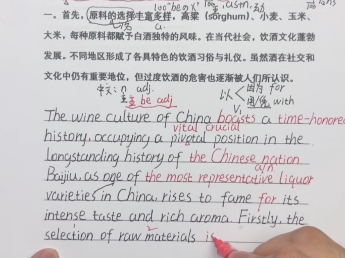 100° be的x° asm.
一、首先，原料的选择丰富多样，高粱（sorghum）、小麦、玉米、
a.
大米，每种原料都赋予白酒独特的风味。在当代社会，饮酒文化蓬勃
发展。不同地区形成了各具特色的饮酒习俗与礼仪。虽然酒在社交和
文化中仍有重要地位，但过度饮酒的危害也逐渐被人们所认识。
中文: n adj.
主 be adj
以 因为 for
with
V.
The wine culture of China boasts a time-honored
vital crucial
history, occupying a pivotal position in the
longstanding history of the Chinese nation
a/n
Baijiu, as one of the most representative liquor
varieties in China, rises to fame for its
intense taste and rich aroma. Firstly, the
2
selection of raw materials is